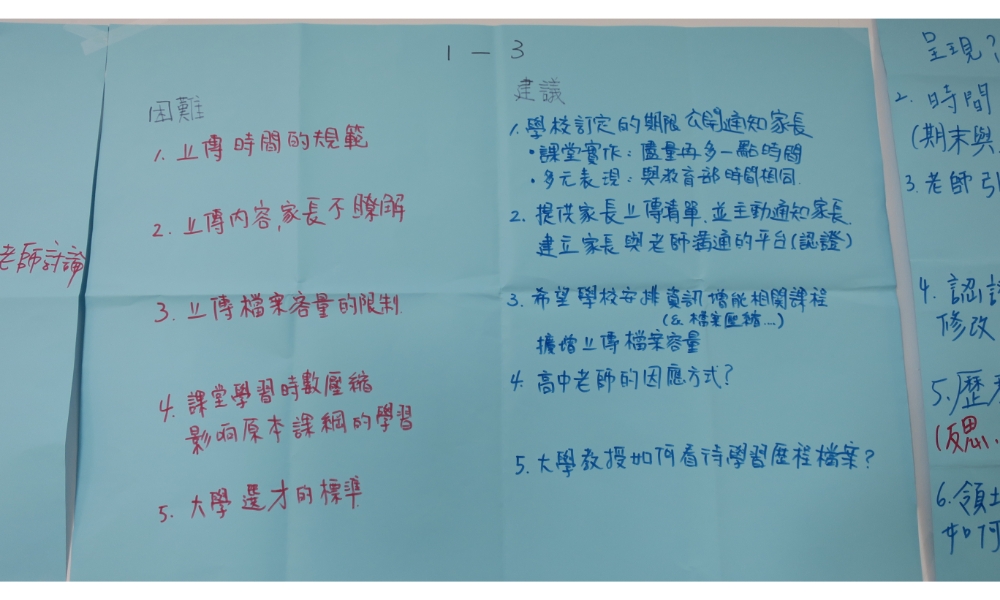 老師討論
1-3
困難
1. 上傳時間的規範
2. 上傳內容,家長不瞭解
3. 上傳檔案容量的限制.
4. 課堂學習時數壓縮
影响原本課綱的學習
5. 大學選才的標準.
建議
1. 學校訂定的期限公開通知家長
•課堂實作:儘量再多一點時間
•多元表現:與教育部時間相同.
2. 提供家長上傳清單,並主動通知家長.
建立家長與老師溝通的平台(認證)
3. 希望學校安排資訊增能相關課程
( 檔案壓縮...)
擴增上傳檔案容量
4. 高中老師的因應方式?
5. 大學教授如何看待學習歷程檔案?
呈現?
2. 時間
(期末與
3. 老師引
4. 認
修改
5. 歷
(反思、
6. 領
如何